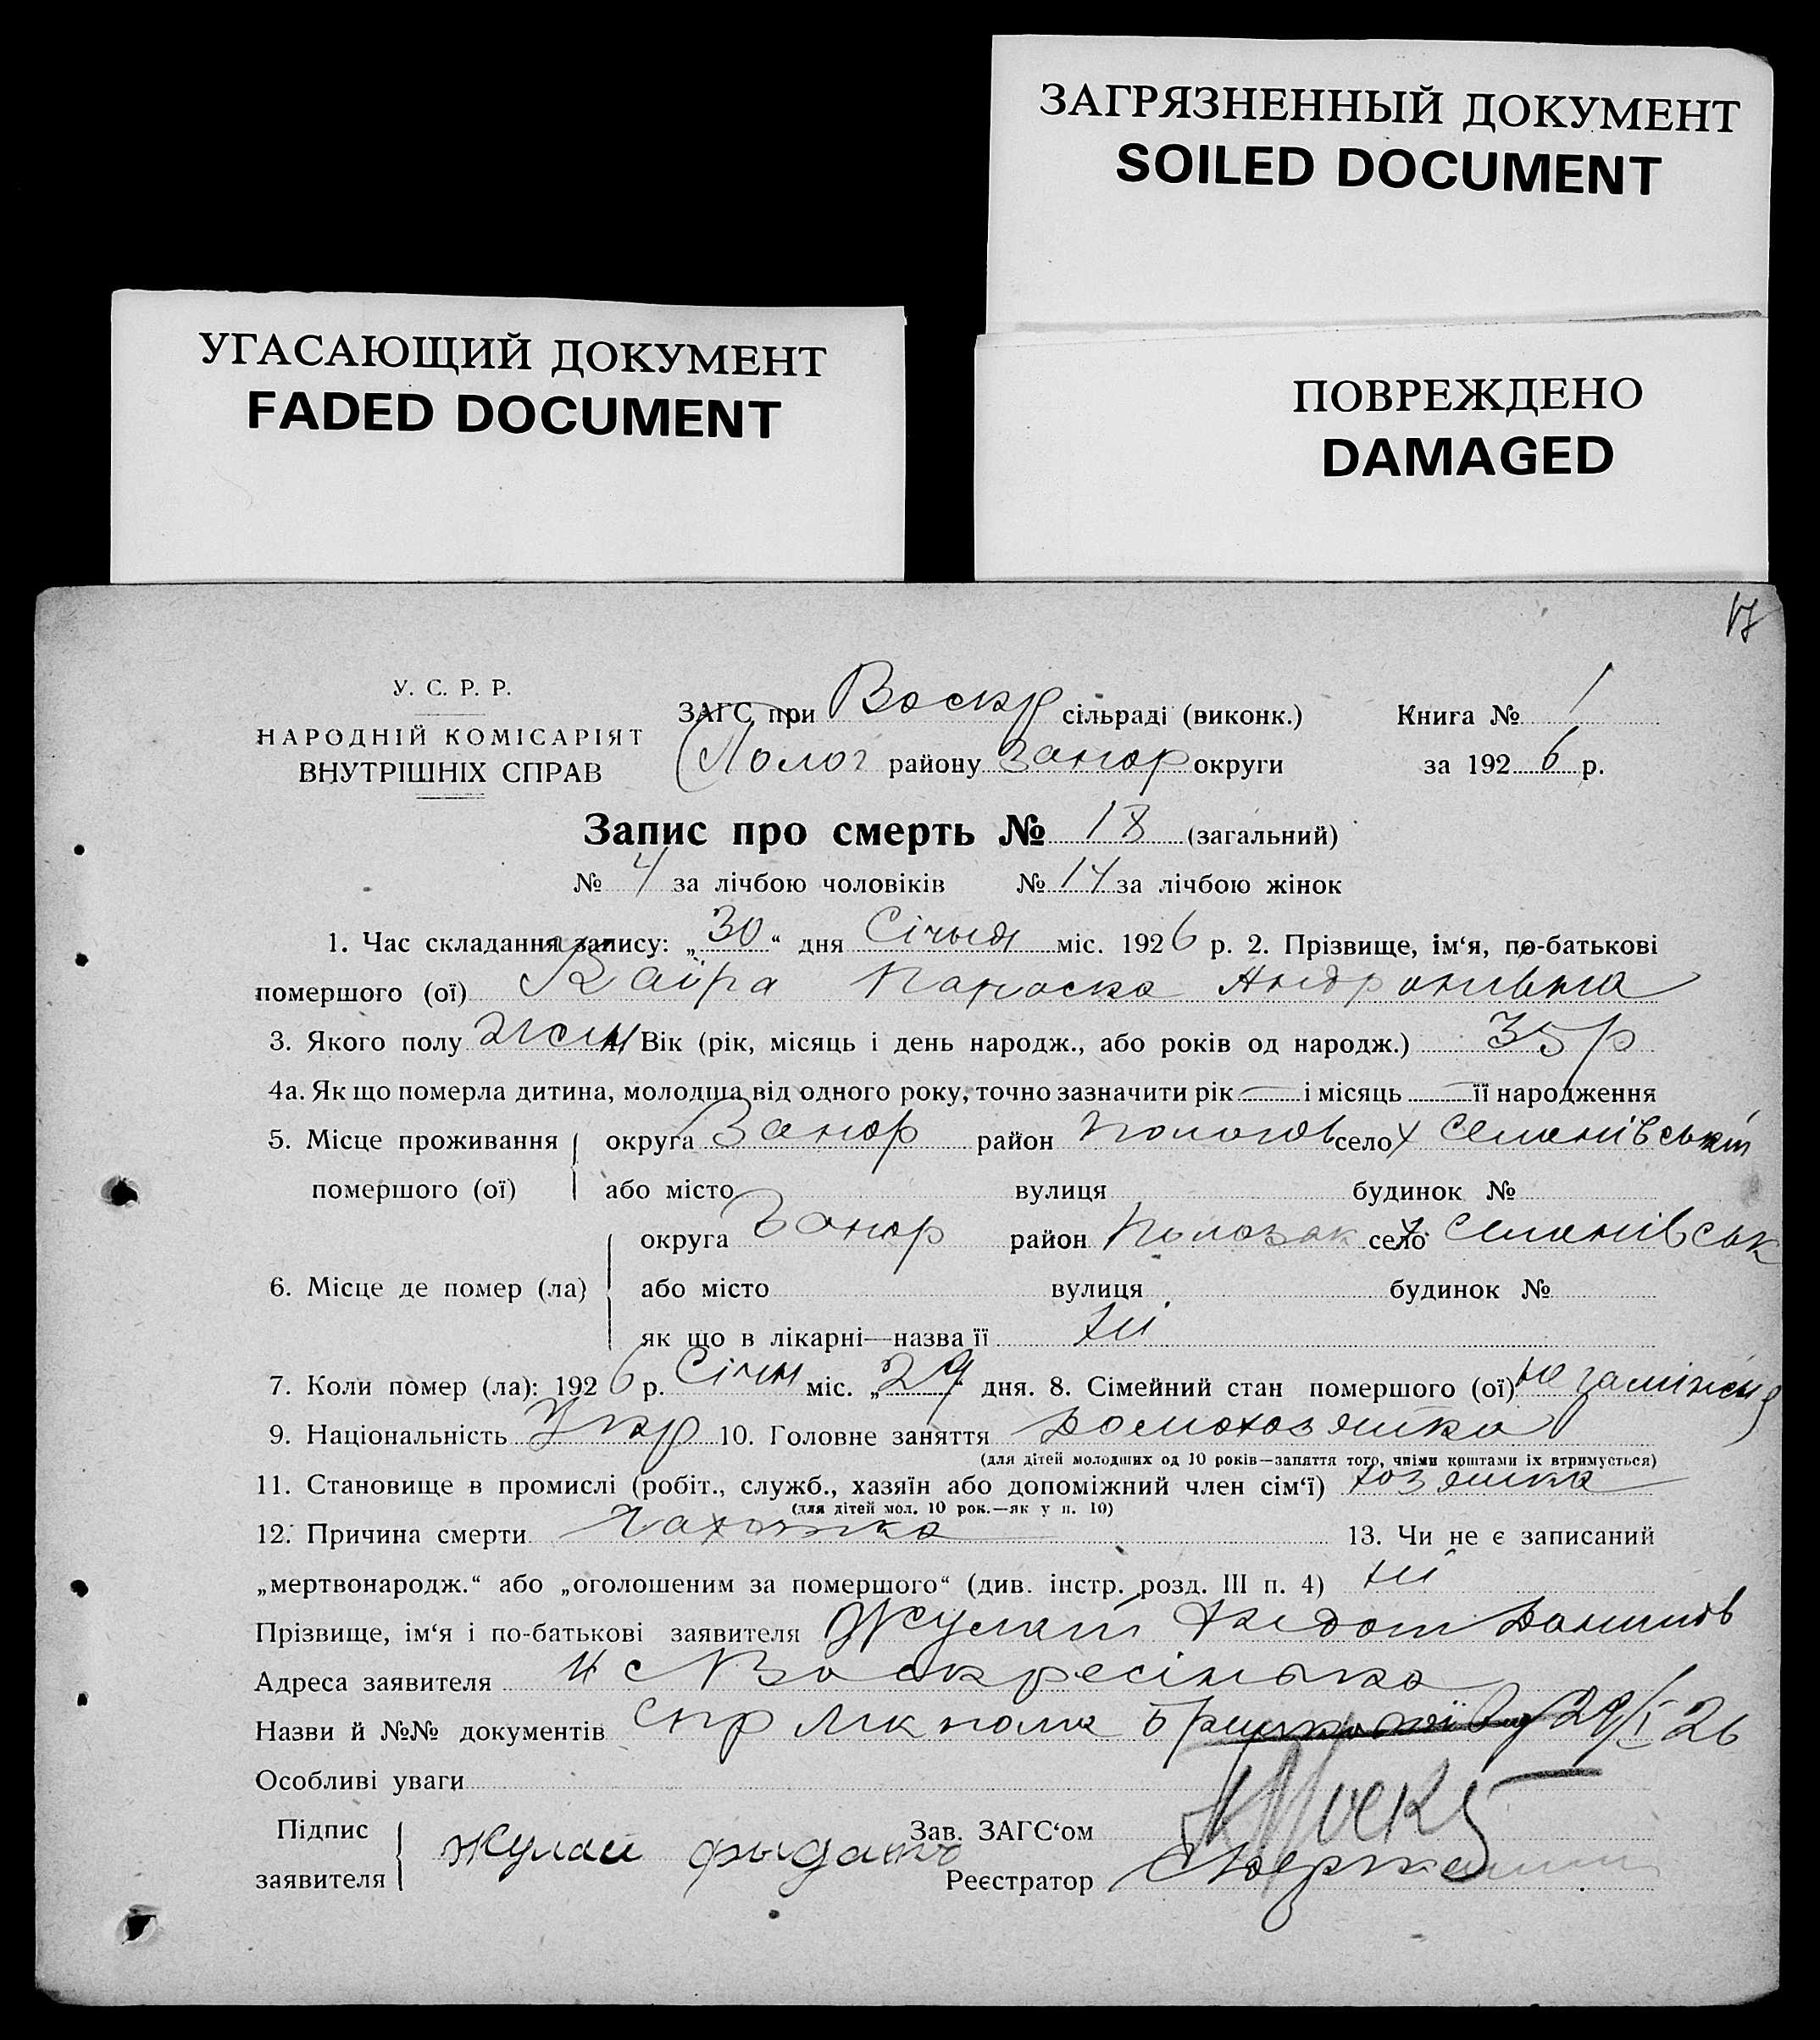 ЗАГРЯЗНЕННЫЙ ДОКУМЕНТ
SOILED DOCUMENT
УГАСАЮЩИЙ ДОКУМЕНТ
FADED DOCUMENT
ПОВРЕЖДЕНО
DAMAGED
17
У. С. Р. Р.
НАРОДНІЙ КОМІСАРІЯТ
ВНУТРІШНІХ СПРАВ
ЗАГС при Воскр сільраді (виконк.) Книга № 1
Полог району Запор округи за 1926 р.
Запис про смерть № 18 (загальний)
№ 4 за лічбою чоловіків № 14 за лічбою жінок
1. Час складання запису: „30“ дня Січня міс. 1926 р. 2. Прізвище, ім‘я, по-батькові
помершого (ої) Каїра Параска
3. Якого полу жін 4. Вік (рік, місяць і день народж., або років од народж.) 35 р
4а. Як що померла дитина, молодша від одного року, точно зазначити рік — і місяць — її народження
5. Місце проживання округа Запор район Пологов село х Семенівський
помершого (ої) або місто вулиця будинок №
округа Запор район село х Семенівськ
6. Місце де помер (ла) або місто вулиця будинок №
як що в лікарні—назва її ні
7. Коли помер (ла): 1926 р. Січня міс. „29“ дня. 8. Сімейний стан помершого (ої) не заміжня
9. Національність Укр 10. Головне заняття домохозяйка
(для дітей молодших од 10 років—заняття того, чиїми коштами їх втримується)
11. Становище в промислі (робіт., служб., хазяїн або допоміжний член сім‘ї) хозяйка
(для дітей мол. 10 рок.—як у п. 10)
12. Причина смерти Чахотка 13. Чи не є записаний
„мертвонародж.“ або „оголошеним за помершого“ (див. інстр. розд. III п. 4) ні
Прізвище, ім‘я і по-батькові заявителя Жулай
Адреса заявителя с Воскресінька
Назви й №№ документів 29/I 26
Особливі уваги
Підпис заявителя жулай Зав. ЗАГС‘ом
Реєстратор